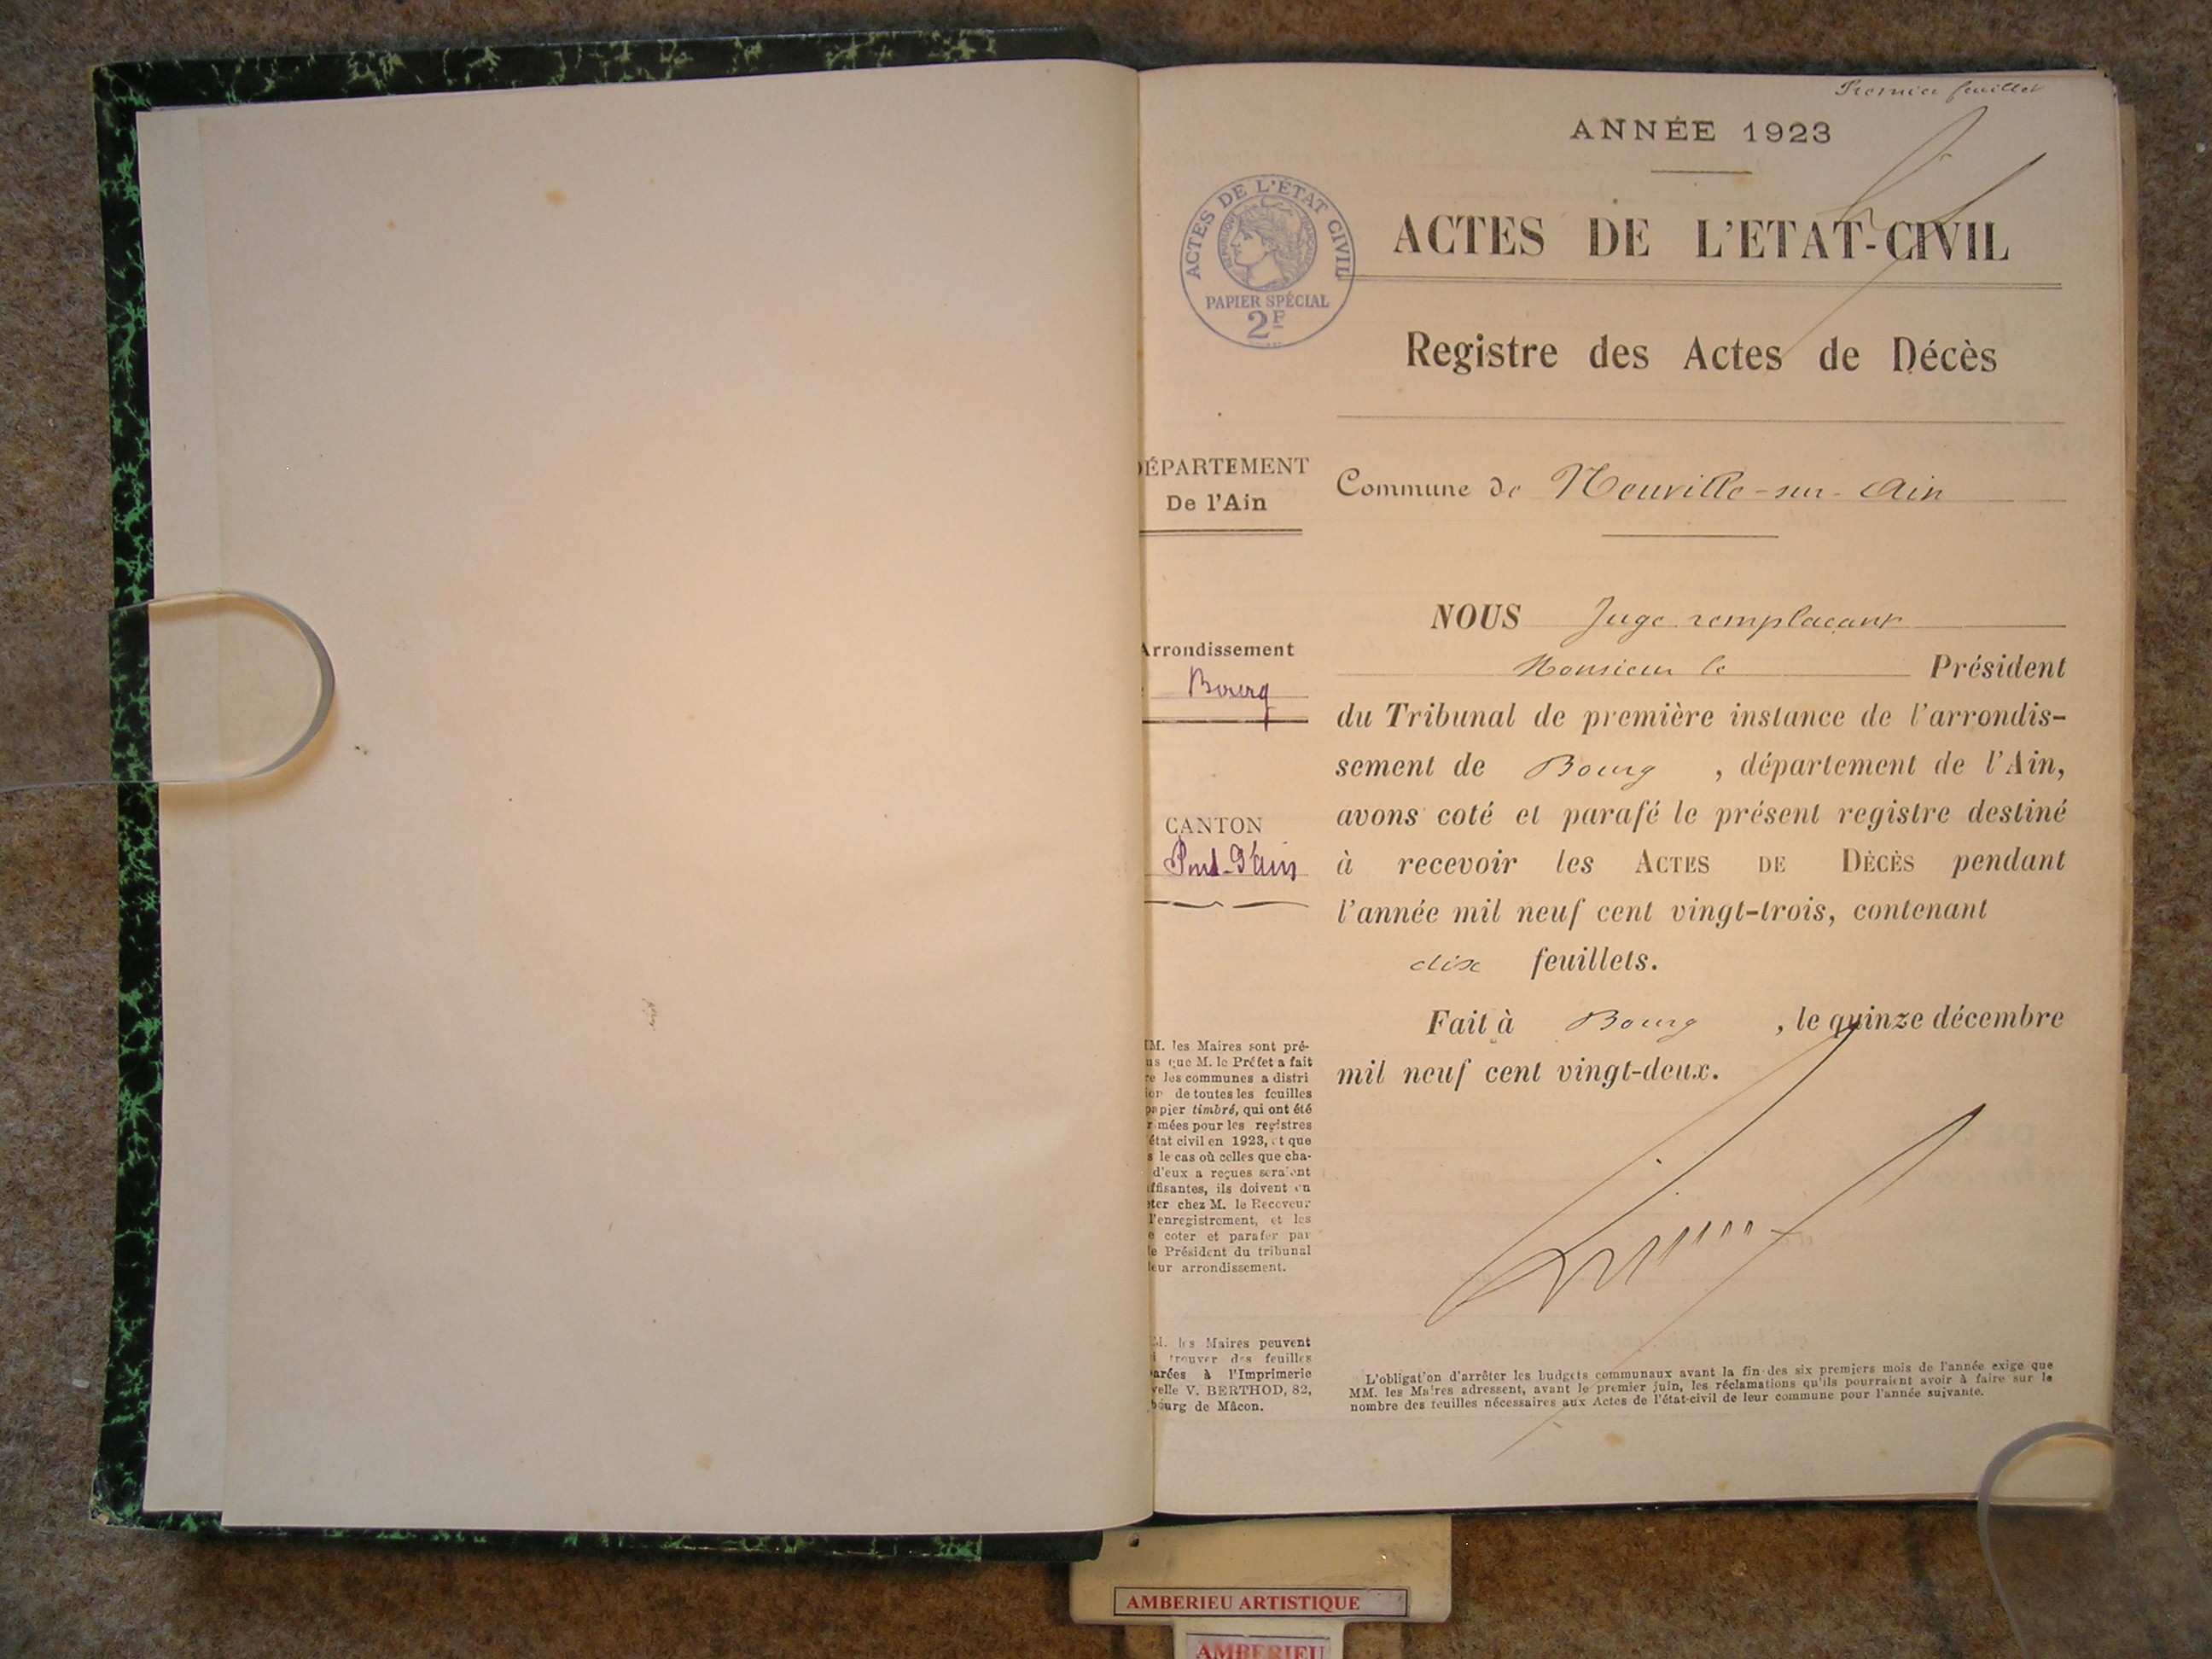 Premier feuillet
ANNÉE 1923
ACTES DE L'ÉTAT CIVIL
RÉPUBLIQUE FRANÇAISE
PAPIER SPÉCIAL
2F
ACTES DE L'ETAT-CIVIL
Registre des Actes de Décès
ÉPARTEMENT
De l'Ain
Commune de Neuville-sur-Ain
Arrondissement
Bourg
CANTON
Pont-d'Ain
NOUS Juge remplaçant
Monsieur le Président
du Tribunal de première instance de l'arrondis-
sement de Bourg, département de l'Ain,
avons coté et parafé le présent registre destiné
à recevoir les ACTES DE DÉCÈS pendant
l'année mil neuf cent vingt-trois, contenant
dix feuillets.
Fait à Bourg, le quinze décembre
mil neuf cent vingt-deux.
M. les Maires sont pré-
us que M. le Préfet a fait
re les communes a distri
ion de toutes les feuilles
papier timbré, qui ont été
rimées pour les registres
état civil en 1923, et que
s le cas où celles que cha-
d'eux a reçues seraient
ffisantes, ils doivent en
ter chez M. le Receveur
l'enregistrement, et les
e coter et parafer par
le Président du tribunal
leur arrondissement.
M. les Maires peuvent
i trouver des feuilles
arées à l'Imprimerie
velle V. BERTHOD, 82,
bourg de Mâcon.
L'obligation d'arrêter les budgets communaux avant la fin des six premiers mois de l'année exige que
MM. les Maires adressent, avant le premier juin, les réclamations qu'ils pourraient avoir à faire sur le
nombre des feuilles nécessaires aux Actes de l'état-civil de leur commune pour l'année suivante.
AMBERIEU ARTISTIQUE
AMBERIEU